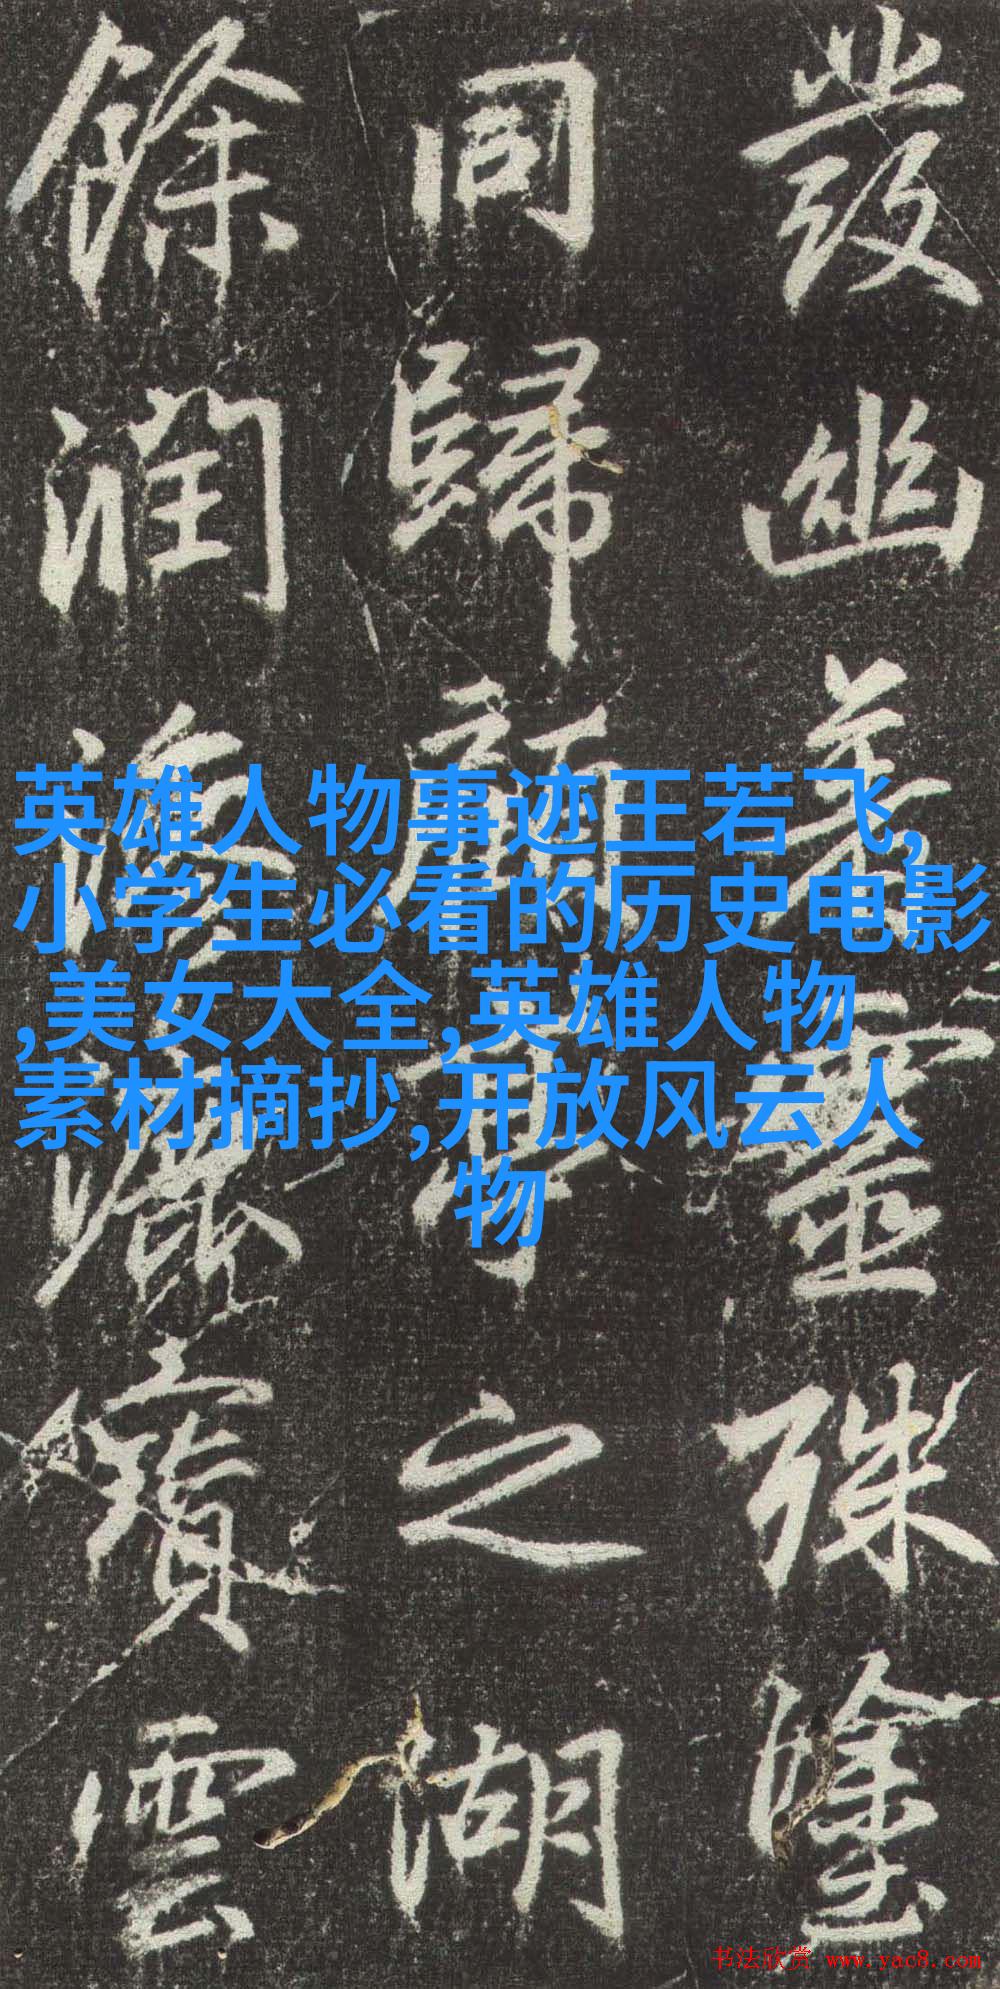 發幽靈殊塗
同歸之湖
餘潤雲
英雄人物事迹王若飞,
小学生必看的历史电影
,美女大全,英雄人物
素材摘抄,开放风云人
物
书法欣赏 www.yac8.com